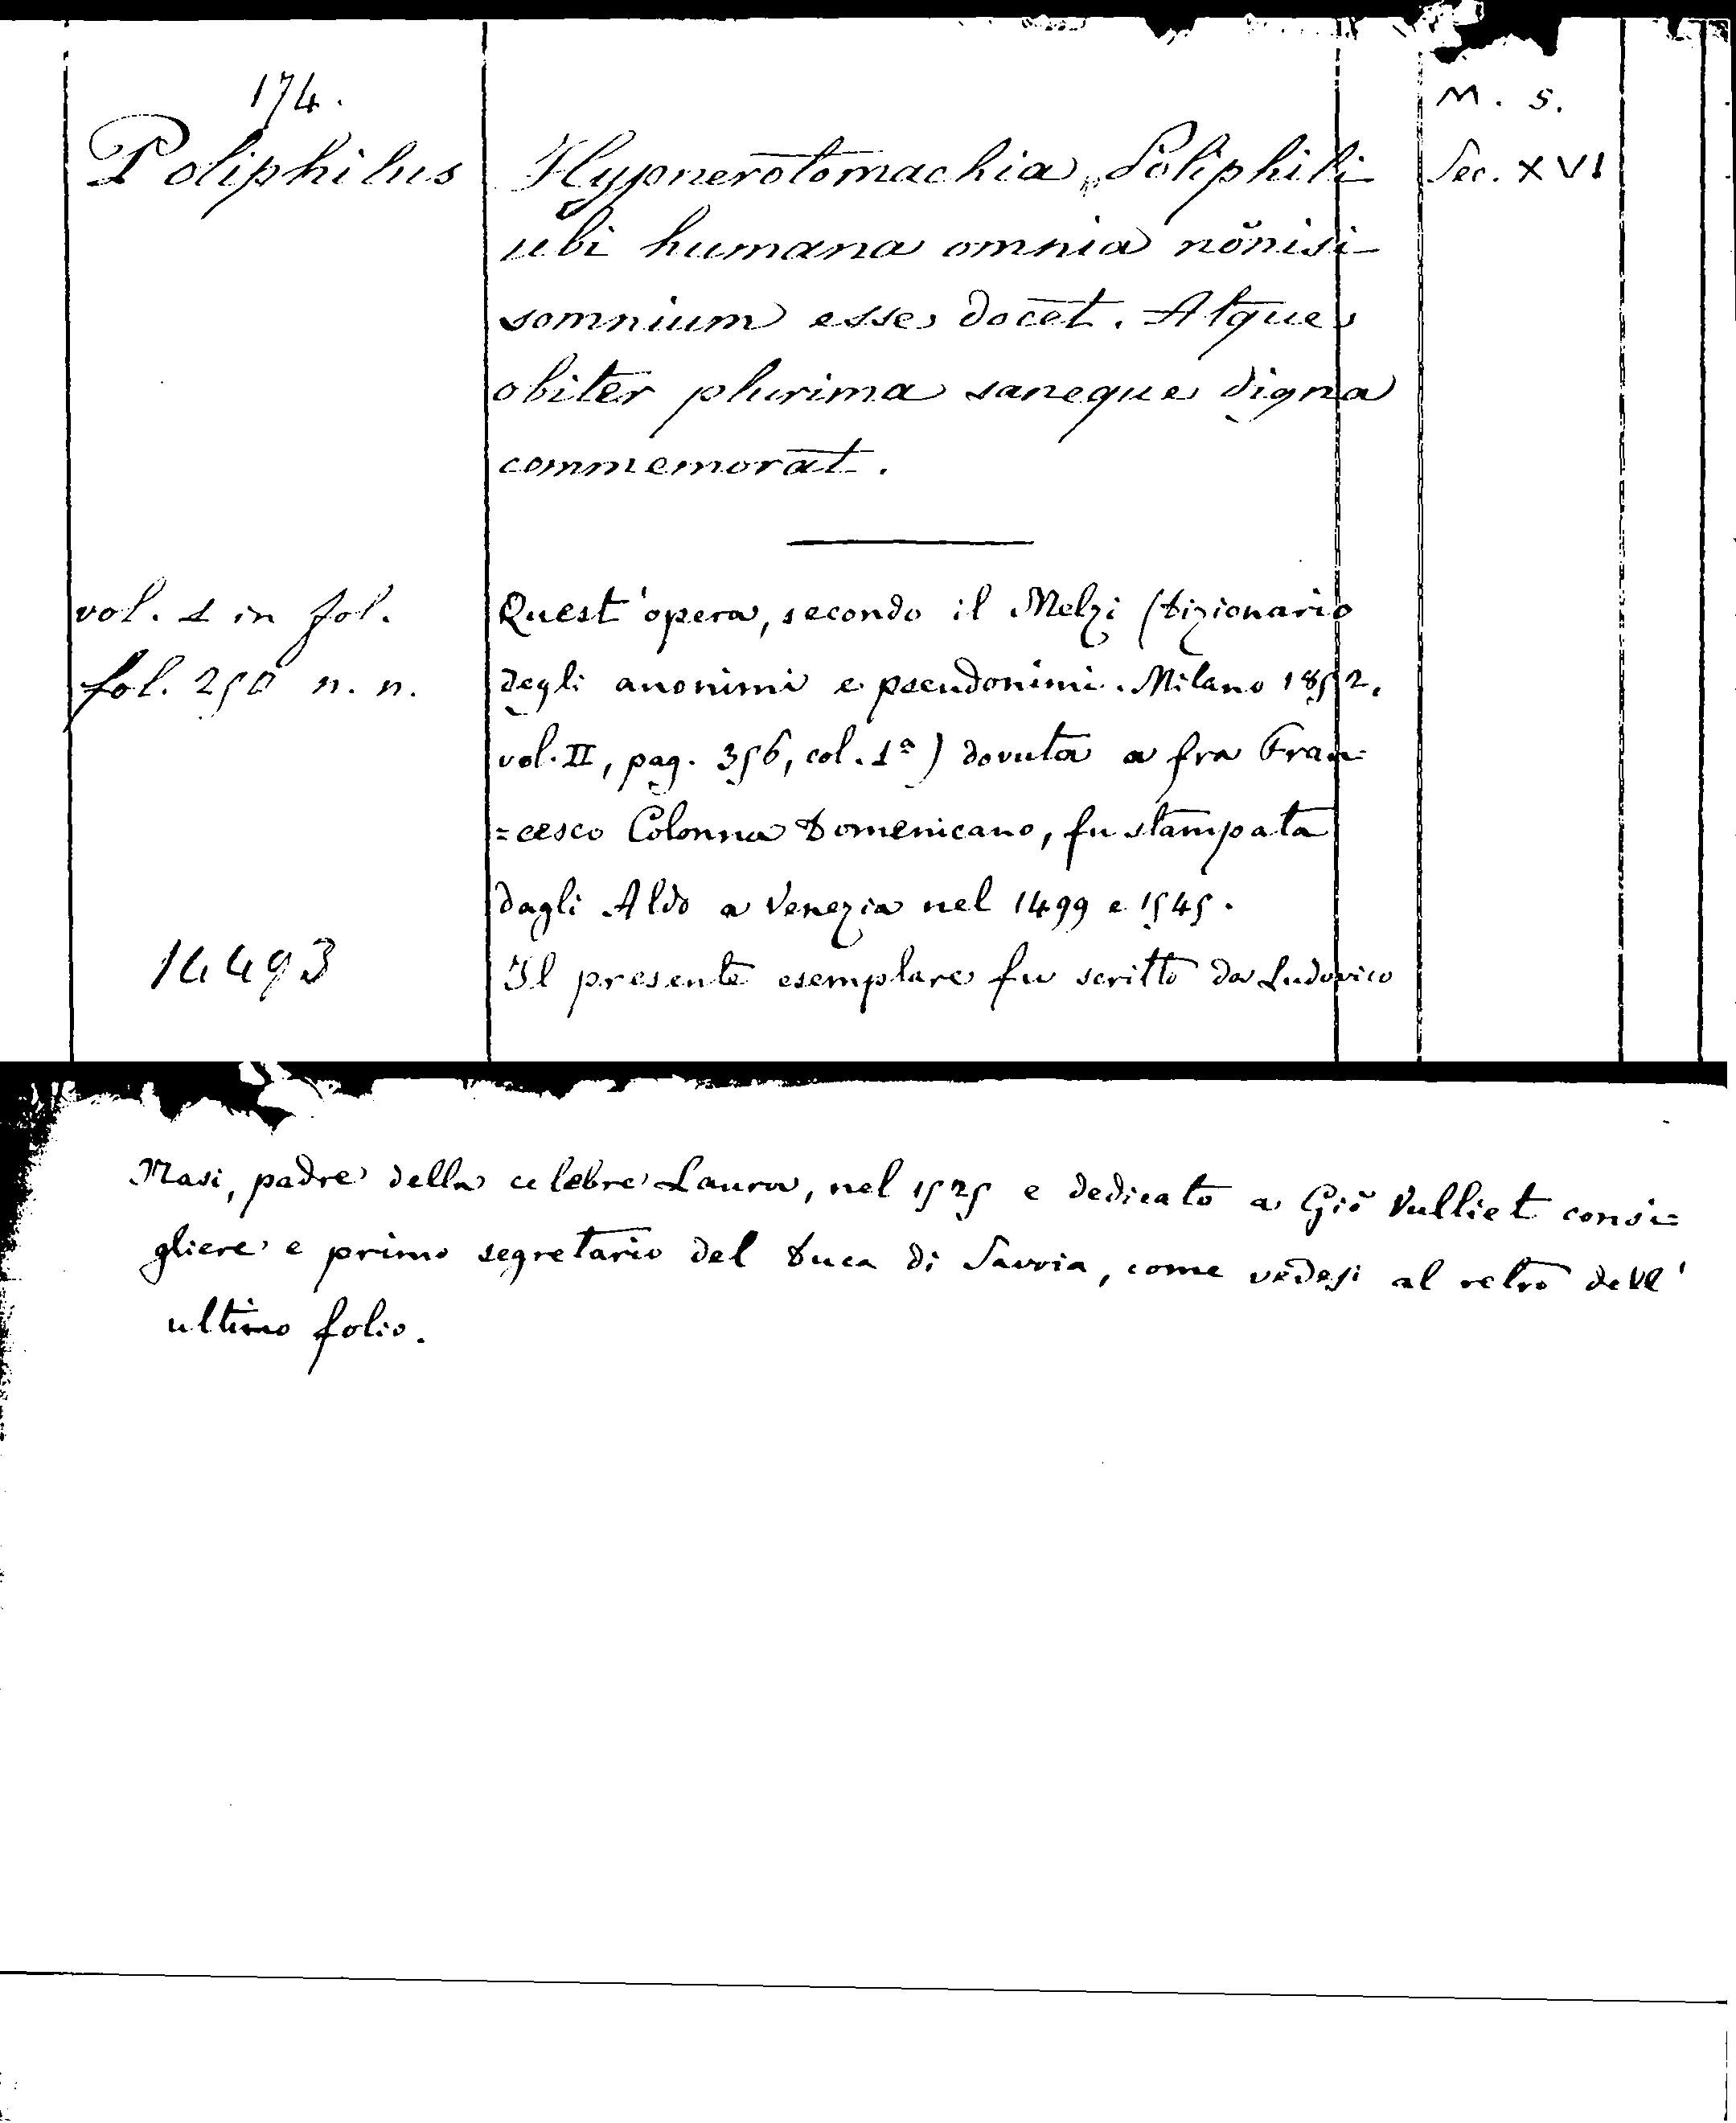 174.
M. S.
Poliphilus
Hypnerotomachia Poliphili
Sec. XVI
ubi humana omnia nõnisi
somnium esse docet. Atque
obiter plurima saneque digna
commemorat.
vol. 1 in fol.
Quest'opera, secondo il Melzi (Dizionario
fol. 250 n. n.
degli anonimi e pseudonimi. Milano 1852.
vol. II, pag. 356, col. 1ª) dovuta a fra Fran=
=cesco Colonna Domenicano, fu stampata
dagli Aldo a Venezia nel 1499 e 1545.
14493
Il presente esemplare fu scritto da Ludovico
Nasi, padre della celebre Laura, nel 1525 e dedicato a Giõ Vulliet consi=
gliere e primo segretario del Duca di Savoia, come vedesi al retro dell'
ultimo folio.